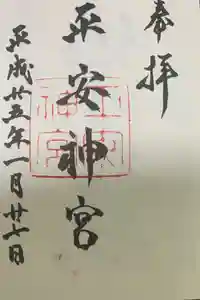 奉拝
平安神宮
平成廿五年一月廿七日